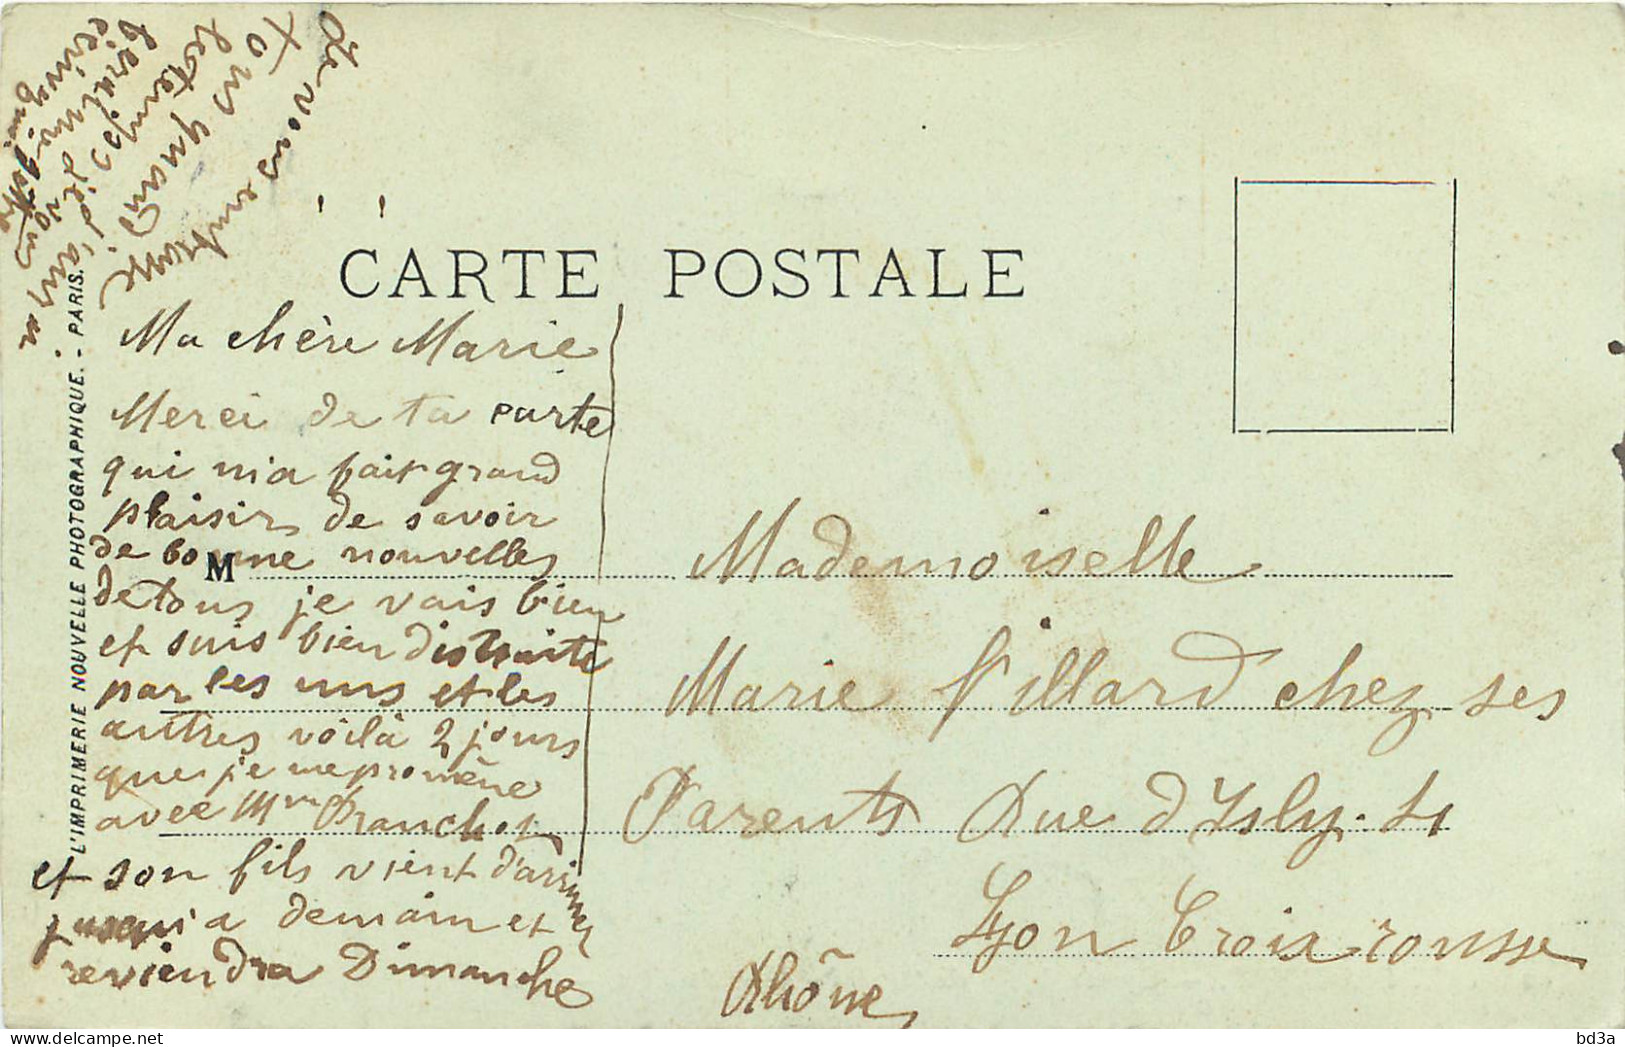 CARTE POSTALE
Ma chère Marie
Merci de ta carte
qui m'a fait grand
plaisir de savoir
de bonne nouvelles
de tous je vais bien
et suis bien distraite
par les uns et les
autres voilà 2 jours
que je me promène
avec Mme
et son fils vient d'arriver
jusqu'a demain et
reviendra Dimanche
de vous embrasse
tous quand
le temps
M
Mademoiselle
Marie Villard chez ses
Parents Rue d'Isly. 11
Lyon Croix rousse
Rhône
L'IMPRIMERIE NOUVELLE PHOTOGRAPHIQUE. - PARIS.
bd3a